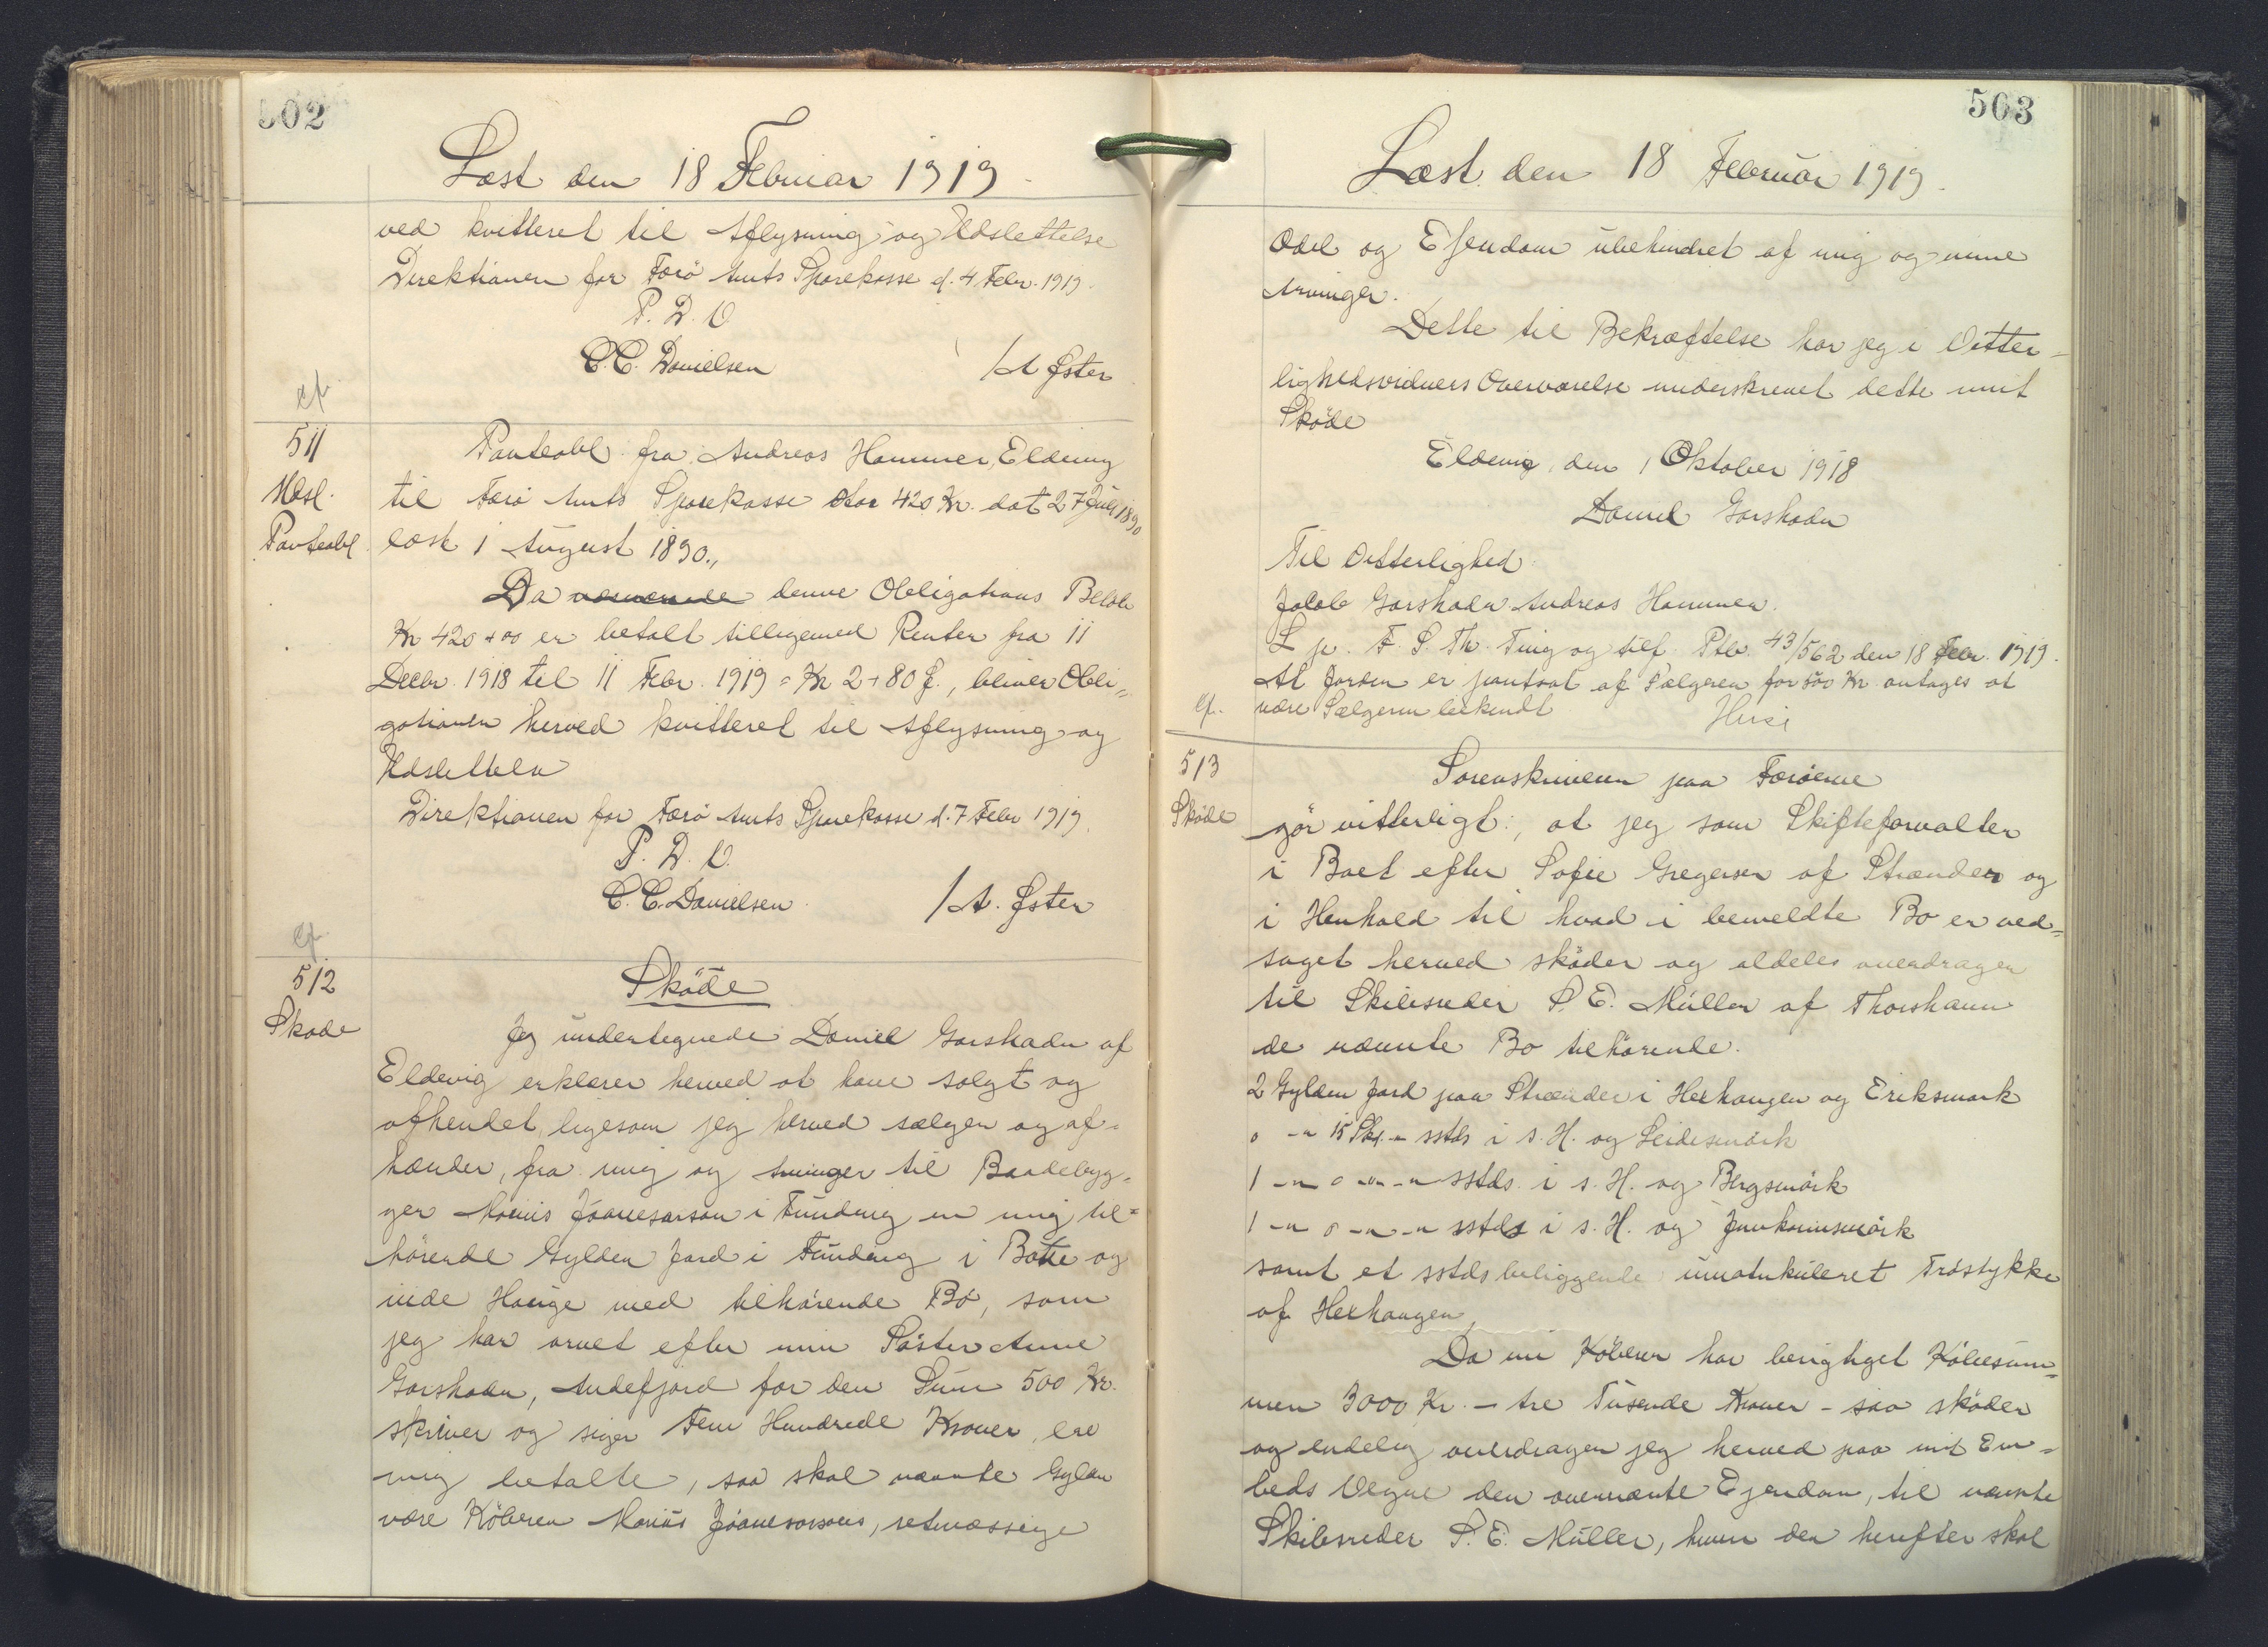 502
Læst den 18 Februar 1919.
ved kvitteret til Aflysning og Udslettelse
Direktionen for Færö Amts Sparekasse d. 4 Febr. 1919.
P. D. V
C. C. Danielsen / A Øster
cf.
511
Udsl.
Panteobl.
Panteobl. fra Andreas Hammer, Eldevig
til Færö Amts Sparekasse stor 420 Kr. dat 27 Juli 1890
læst 1 August 1890.,
Da denne Obligations Beløb
Kr 420+00 er betalt tilligemed Renter fra 11
Decbr. 1918 til 11 Febr. 1919 = Kr 2+80 Ø., bliver Obli=
gationen herved kvitteret til Aflysning og
Udslettelse
Direktionen for Færö Amts Sparekasse d. 7 Febr 1919.
P. D. V.
C. C. Danielsen / A. Øster
cf.
512
Skøde
Sköde
Jeg undertegnede Daniel Garshadn af
Eldevig erklærer herved at have solgt og
afhendet, ligesom jeg herved sælger og af=
hænder, fra mig og Arvinger til Baadebyg=
ger Marius Jóanesarson i Funding en mig til=
hørende Gylden Jord i Funding i Botte og
inde Hauge med tilhörende Bö, som
jeg har arvet efter min Söster Anne
Garshadn, Andefjord for den Sum 500 Kr.
skriver og siger Fem Hundrede Kroner, ere
mig betalte, saa skal nævnte Gylden
være Köberen Marius Jóanesarsons, retmæssige
563
Læst den 18 Februar 1919.
Odel og Ejendom ubehindret af mig og mine
Arvinger.
Dette til Bekræftelse har jeg i Vitter=
lighedsvidners Overværelse underskrevet dette mit
Sköde
Eldevig, den 1 Oktober 1918
Daniel Garshadn
Til Vitterlighed
Jacob Garshadn Andreas Hammer.
L p. F. S. Th. Ting og tilf. Ptb. 43/562 den 18 Febr. 1919.
At Jorden er pantsat af Sælgeren for 500 Kr antages at
være Sælgeren bekendt
cf.
513
Sköde
Sorenskriveren paa Færöerne
gör vitterligt:, at jeg som Skifteforvalter
i Boet efter Sofie Gregersen af Strænder og
i Henhold til hvad i bemeldte Bo er ved=
taget herved sköder og aldeles overdrager
til Skibsreder S. E. Müller af Thorshavn
de nævnte Bo tilhörende.
2 Gylden Jord paa Strænder i Heehaugen og Eriksmørk
0 -"- 15 Sk. -"- sstds i s. H. og Leidesmörk
1 -"- 0 -"- -"- sstds. i s. H. og Bergsmörk
1 -"- 0 -"- -"- sstds i s. H. og Junkarinsmörk
samt et sstds beliggende umatrikuleret Tröstykke
af Heehaugen,
Da nu Köberen har berigtiget Köbesum=
men 3000 Kr. - tre Tusende Kroner - saa sköder
og endelig overdrager jeg herved paa mit Em=
beds Vegne den ovennævnte Ejendom, til nævnte
Skibsreder S. E. Müller, hvem den herefter skal